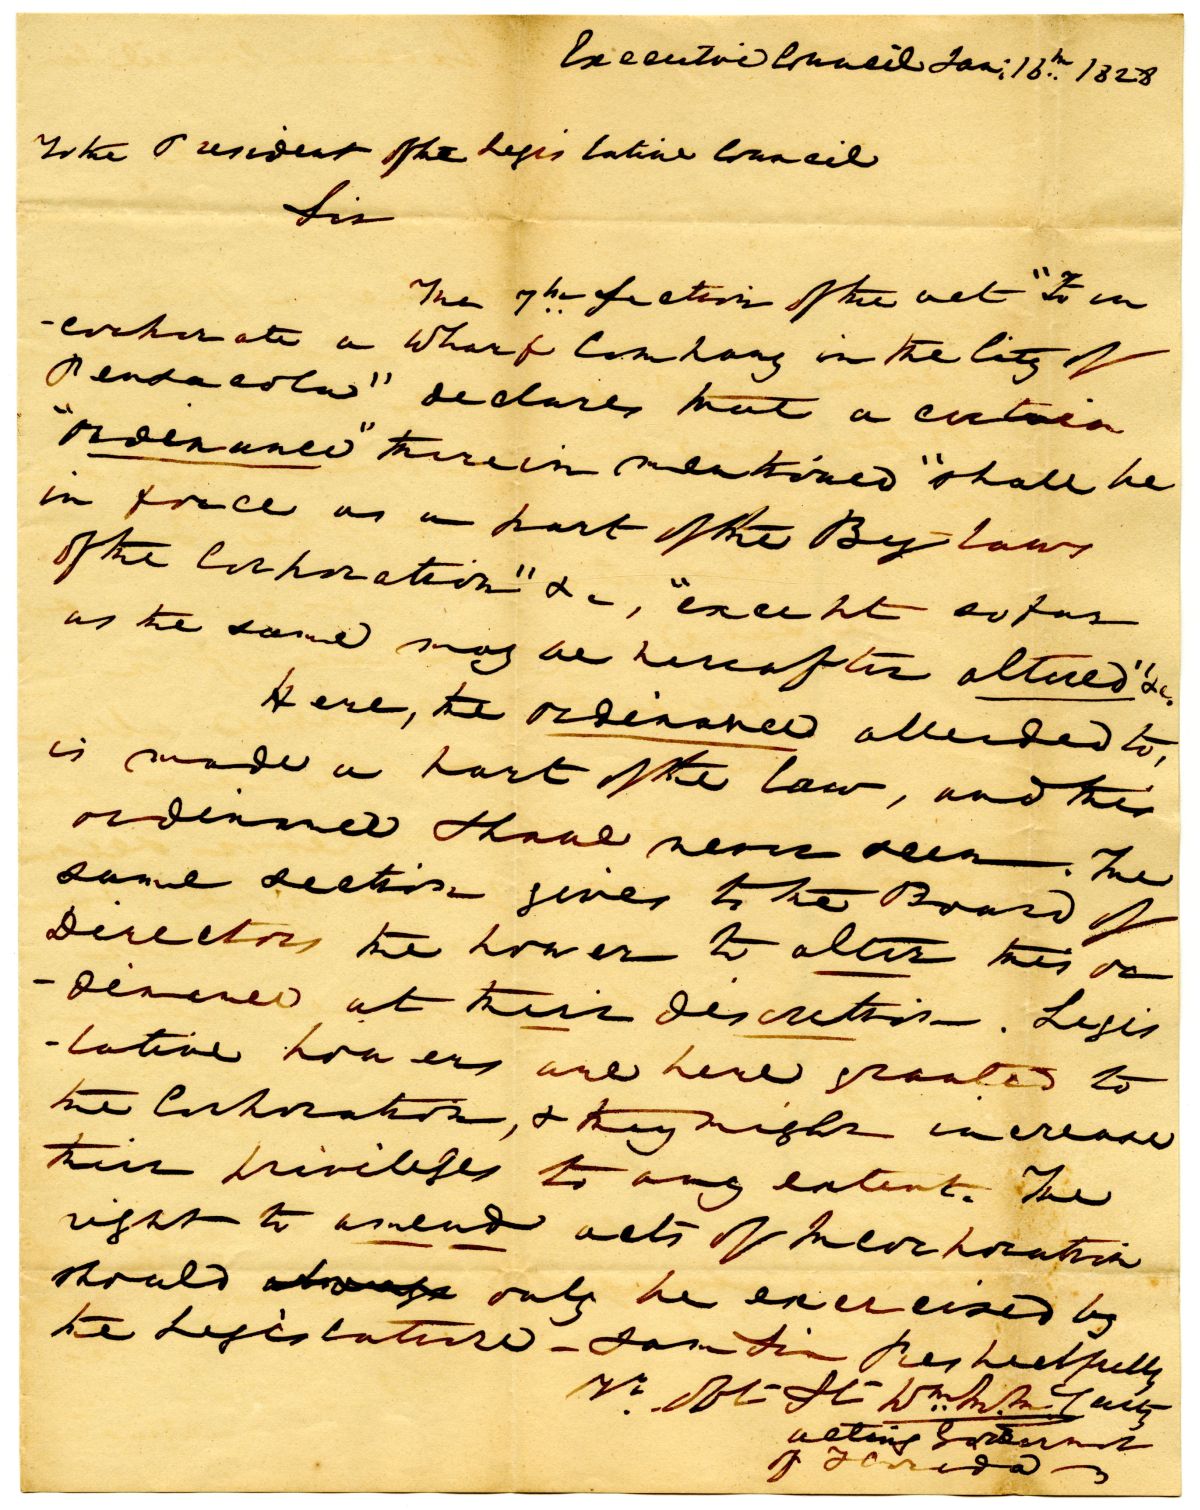 Executive Council Jan: 16th 1828
To the President of the Legislative Council
Sir
The 7th Section of the act "To in
-corporate a Wharf Company in the City of
Pensacola" declares that a certain
"ordinance" therein mentioned "shall be
in force as a part of the By-laws
of the Corporation" &c, "except so far
as the same may be hereafter altered" &c.
Here, the ordinance alluded to,
is made a part of the law, and this
ordinance I have never seen. The
same section gives to the Board of
Directors the power to alter this or
-dinance at their discretion. Legis
-lative powers are here granted to
the Corporation, & they might increase
their privileges to any extent. The
right to amend acts of Incorporation
should always only be exercised by
the Legislature - I am Sir Respectfully
Yr. Obt St Wm. M. Mc. Carty
acting Governor
of Florida